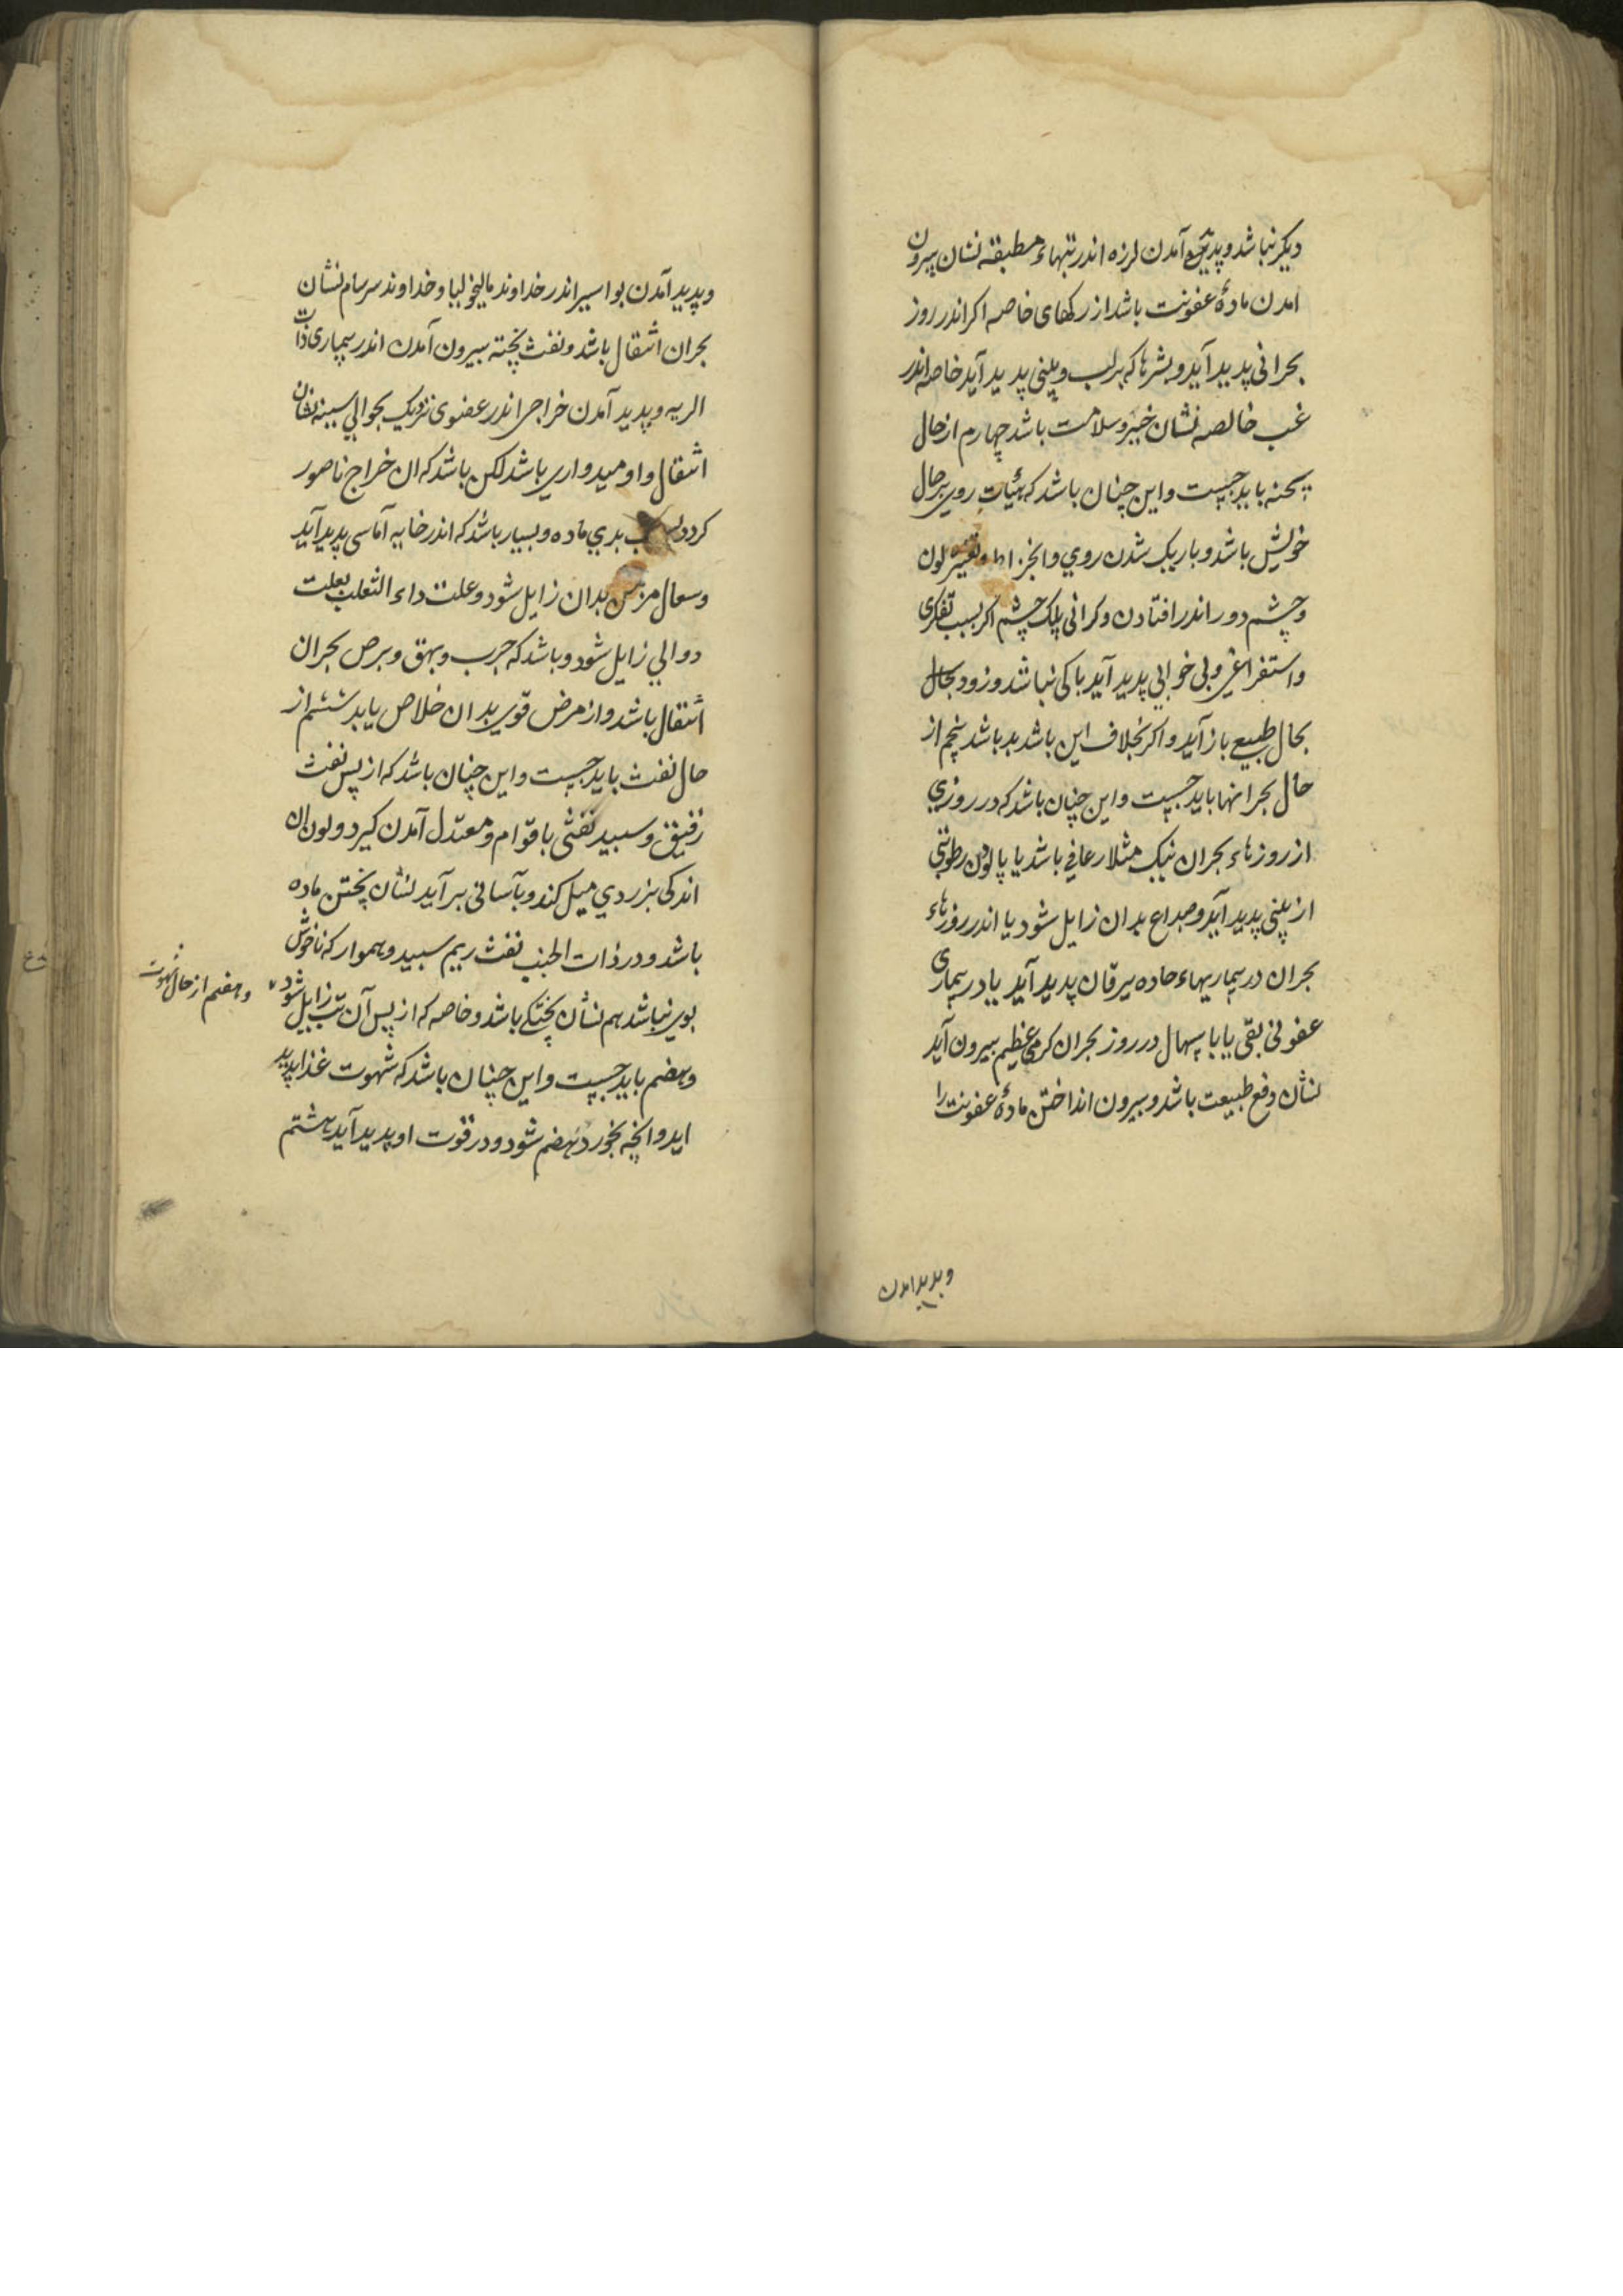 دیکر نباشد و پدید آمدن لرزه اندر تبهاء مطبقه نشان بیرون
امدن مادهٔ عفونت باشد از رکهای خاصه اکر اندر روز
بحرانی پدید آید و بشرها که بر لب و بینی پدید آید خاصه اندر
غب خالصه نشان خیر و سلامت باشد چهارم از حال
سحنه باید جست و این چنان باشد که هیٔات روی بر حال
خویش باشد و باریک شدن روی و تغییر لون
و چشم دور اندر افتادن و کرانی پلک چشم اکر بسبب تفکری
و استفراغی و بی خوابی پدید آید باکی نباشد و زود بحال
بحال طبیع باز آید و اکر بخلاف این باشد بد باشد پنجم از
حال بحرانها باید جست و این چنان باشد که در روزی
از روزهاء بحران نیک مثلا رعافی باشد یا پالودن رطوبتی
از بینی پدید آید و صداع بدان زایل شود یا اندر روزهاء
بحران در بیماریهاء حاده یرقان پدید آید یا در بیماری
عفونی بقی یا باسهال در روز بحران کرمی عظیم بیرون آید
نشان دفع طبیعت باشد و بیرون انداختن مادهٔ عفونت را
و پدید امدن
و پدید آمدن بواسیر اندر خداوند مالیخولیا و خداوند سرسام نشان
بحران انتقال باشد و نفث پخته بیرون آمدن اندر بیماری ذات
الریه و پدید آمدن خراجی اندر عضوی نزدیک بحوالی سینه نشان
انتقال و اومیدواری باشد لکن باشد که ان خراج ناصور
کردد بدی ماده و بسیار باشد که اندر خایه آماسی پدید آید
و سعال مزمن بدان زایل شود و علت داء الثعلب بعلت
دوالی زایل شود و باشد که جرب و بهق و برص بحران
انتقال باشد و از مرض قوی بدان خلاص یابد ششم از
حال نفث باید جست و این چنان باشد که از پس نفث
رقیق و سپید نفثی با قوام و معتدل آمدن کیرد و لون ان
اندکی بزردی میل کند و بآسانی بر آید نشان پختن ماده
باشد و در ذات الجنب نفث ریم سپید و هموار که ناخوش
بوی نباشد هم نشان پختکی باشد و خاصه که از پس آن تب زایل شود
و هفتم از حال شهوت
و هضم باید جست و این چنان باشد که شهوت غذا پدید
اید و انچه بخورد هضم شود و در قوت او پدید آید هشتم